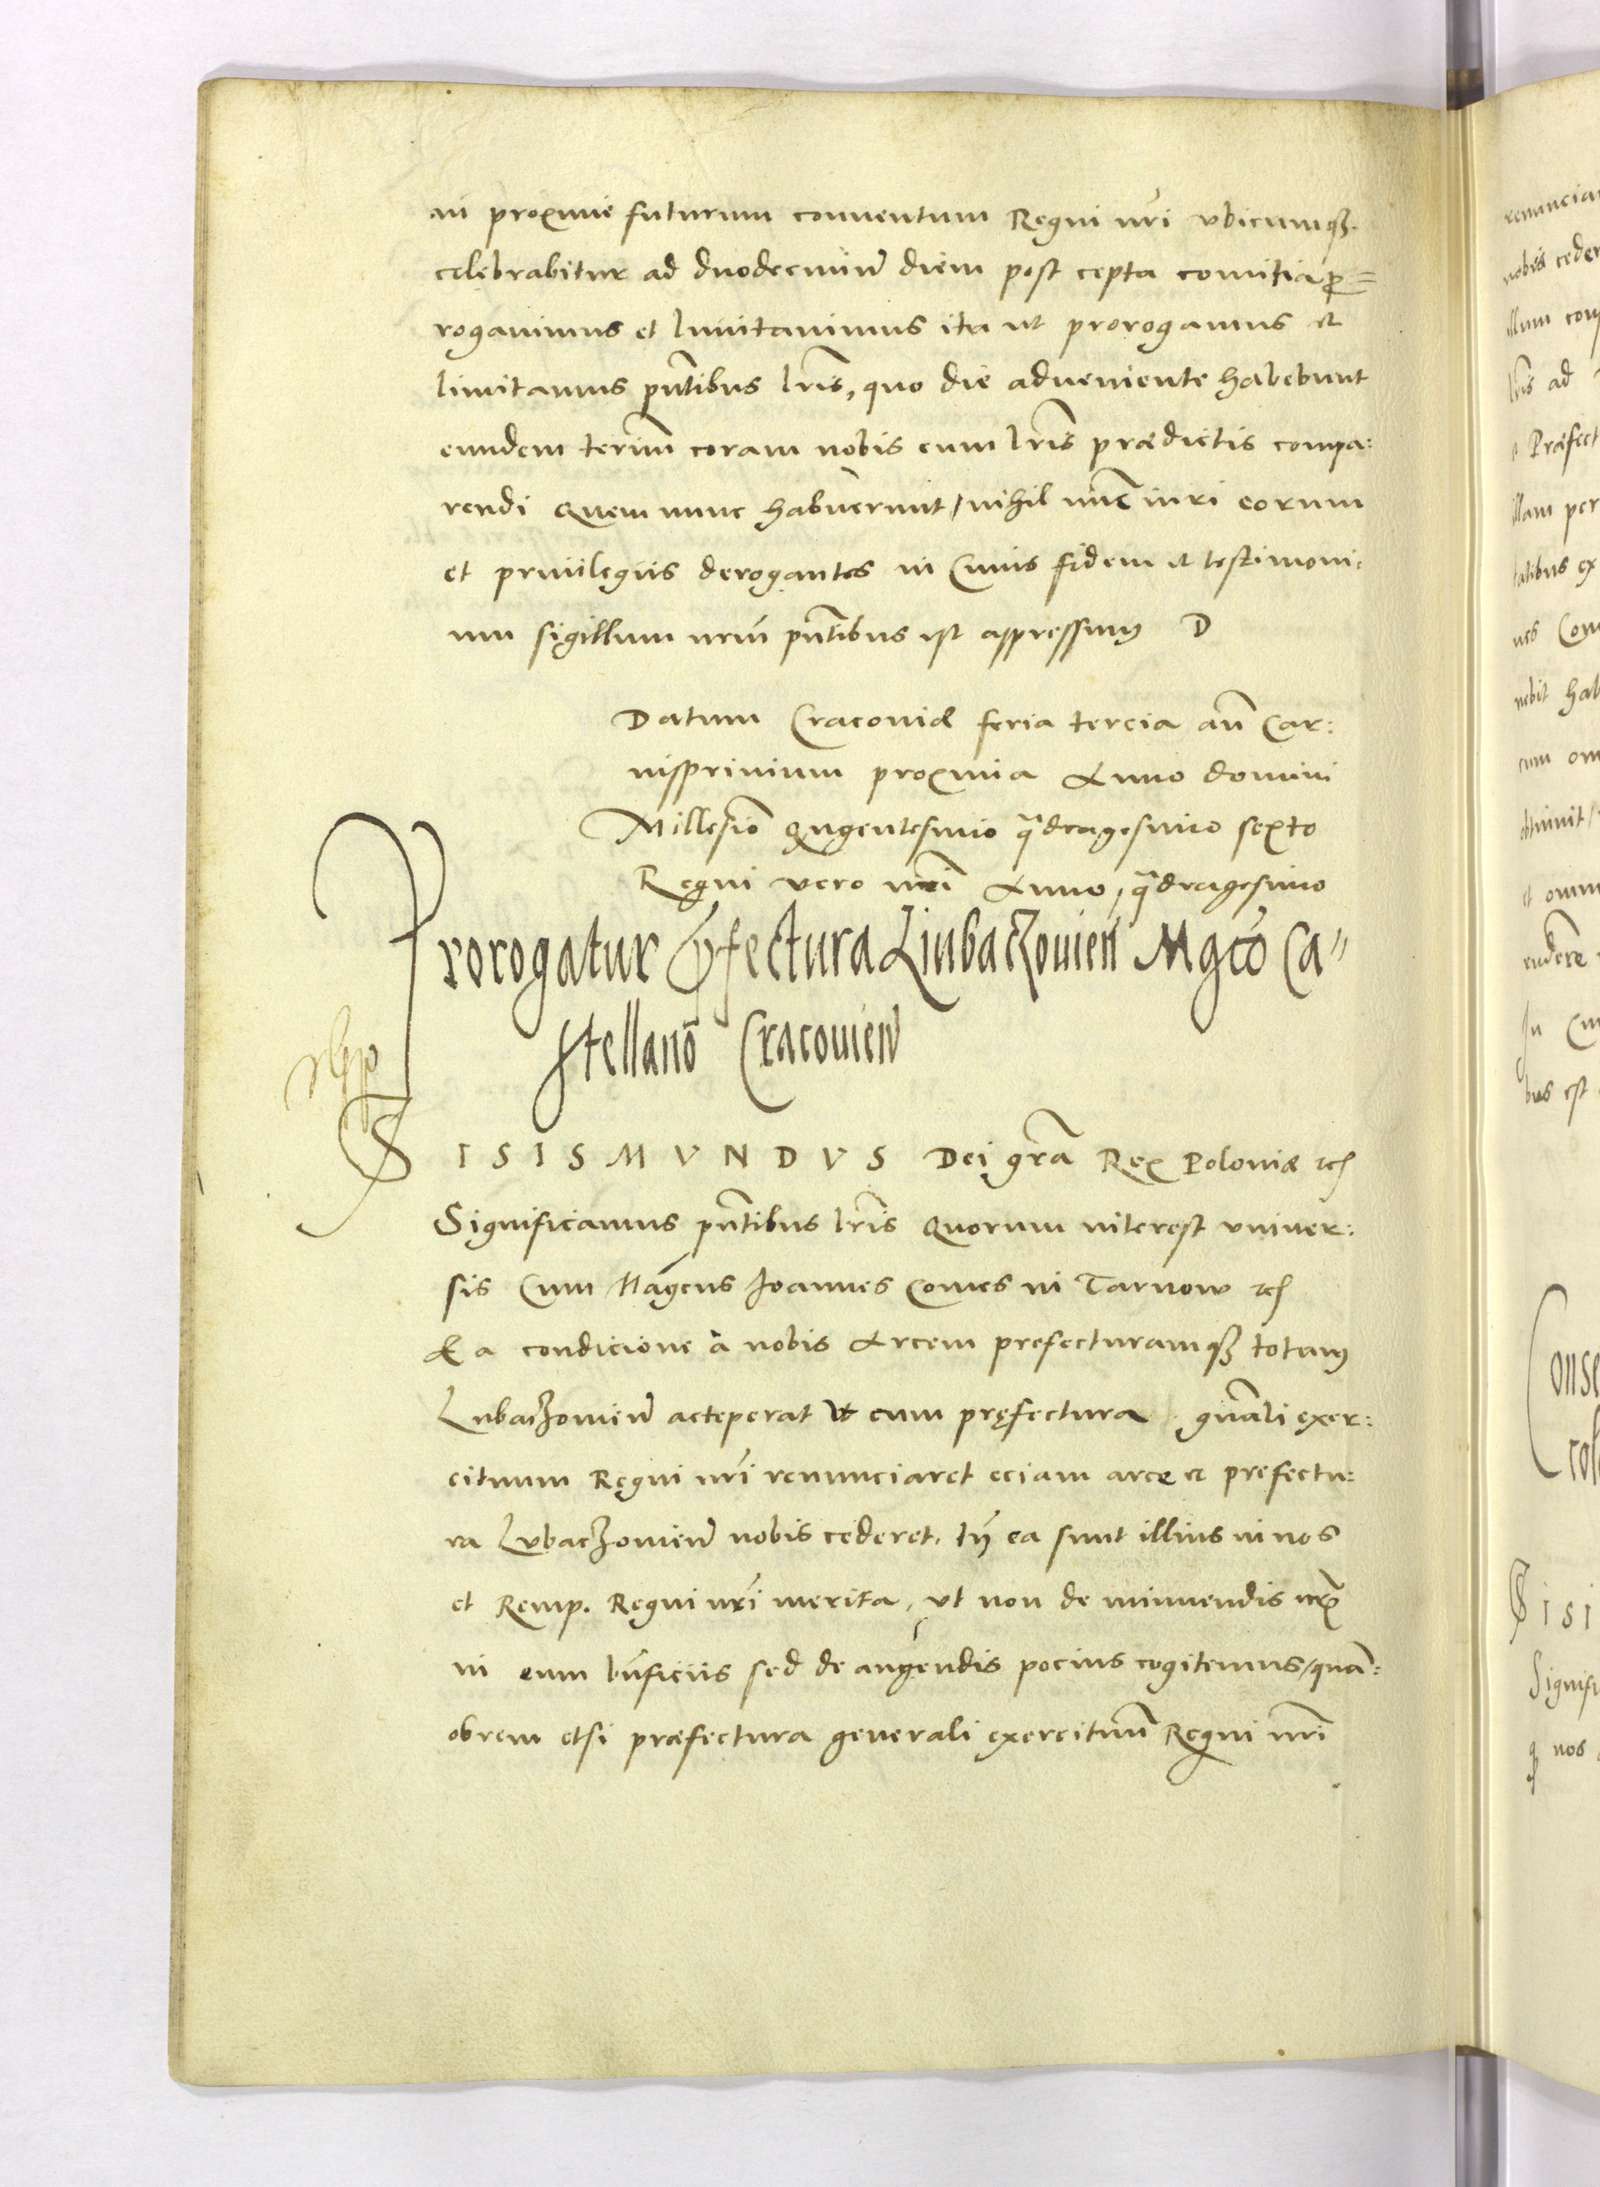 in proxime futurum conuentum Regni nri vbicumqz
celebrabitur ad duodecimũ diem post cepta comitia ꝓ=
rogauimus et limitauimus ita ut prorogamus et
limitamus pñtibus lris, quo die adueniente habebunt
eundem termĩ coram nobis cum lris prædictis compa:
rendi quem nunc habuerunt, nihil iuri eorum
et priuilegiis derogantes in Cuius fidem et testimoni,
um sigillum nrũ pñtibus est appressum D
Datum Cracouiæ feria tercia añ Car:
nispriuium proxima Anno domini
Millesiõ Qngentesimo qͣdragesimo sexto
Regni vero nri Anno, qͣdragesimo
Prorogatur P̄fectura Liubaczouien̄ Mgco Ca"
stellano Cracouien̄
SISISMVNDVS Dei gra Rex Poloniæ etc
Significamus pñtibus lris Quorum interest vniuer:
sis Cum Magcus Joannes Comes in Tarnow etc
Ea condicione à nobis Arcem prefecturamqz totam
Lubaczouien̄ acceperat Vt cum pręfectura gñali exer:
cituum Regni nri renunciaret eciam arce et prefectu:
ra Lubaczouien̄ nobis cederet, tñ ea sunt illius in nos
et Remp. Regni nri merita, ut non de minuendis nrx
in eum bñficiis sed de augendis pocius cogitemus, quã:
obrem etsi præfectura generali exercituũ Regni nri
renuncia
nobis ceder
illum com
lris ad
Præfect
illam per
tatibus ex
nes Com
nebit hab
cum om
obtinuit
et omni
endere
In Cui
bus est
Conse
rol
SISI
Signifi
nos